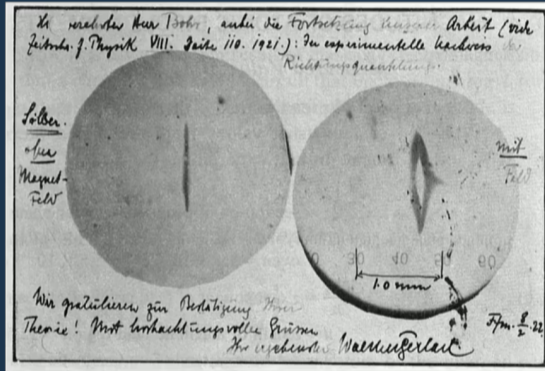 verehrter Herr Bohr, anbei die Fortsetzung unserer Arbeit (vide
Zeitschr. f. Physik VIII. Seite 110. 1921.): Der experimentelle Nachweis der
Richtungsquantelung.
Silber
ohne
Magnet-
Feld
mit
Feld
30 40 60
1.0 mm
Wir gratulieren zur Bestätigung Ihrer
Theorie! Mit hochachtungsvollen Grüssen
Ihr ergebenster Walther Gerlach
Ffm. 8/2. 22.